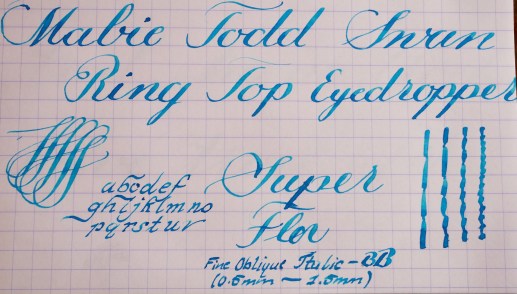 Mabie Todd Swan
Ring Top Eyedropper
abcdef
ghijklmno
pqrstuv
Super
Flex
Fine Oblique Italic - BB
(0.5mm ~ 1.5mm)